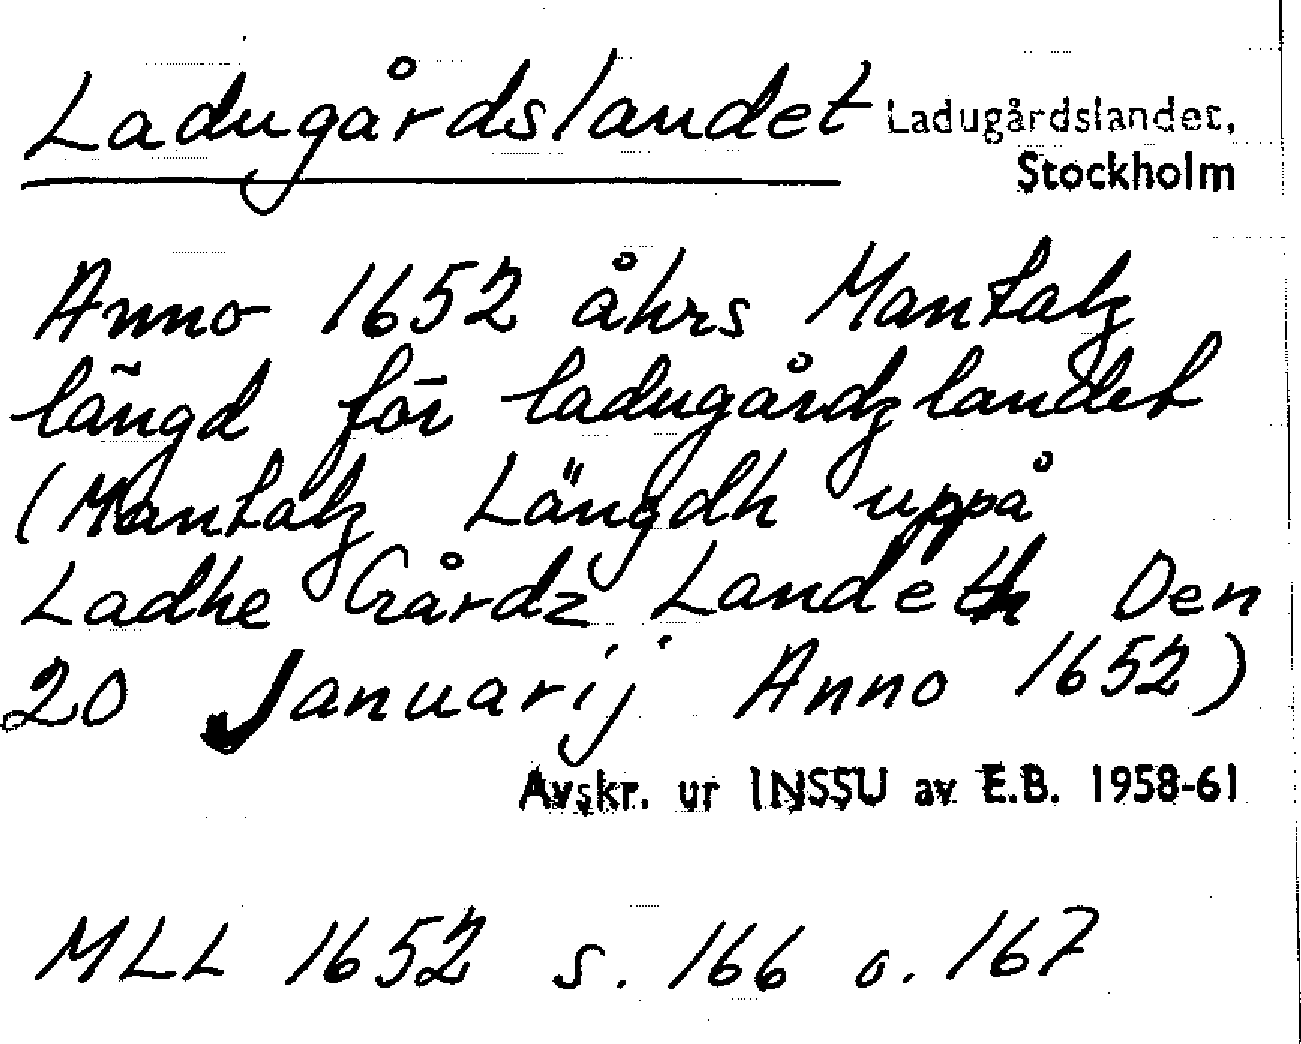 Ladugårdslandet Ladugårdslandet,
Stockholm
Anno 1652 åhrs Mantalz
längd för ladugårdzlandet
(Mantalz Längdh uppå
Ladhe Gårdz Landeth Den
20 Januarij Anno 1652)
Avskr. ur INSSU av E.B. 1958-61
MLL 1652 s. 166 o. 167